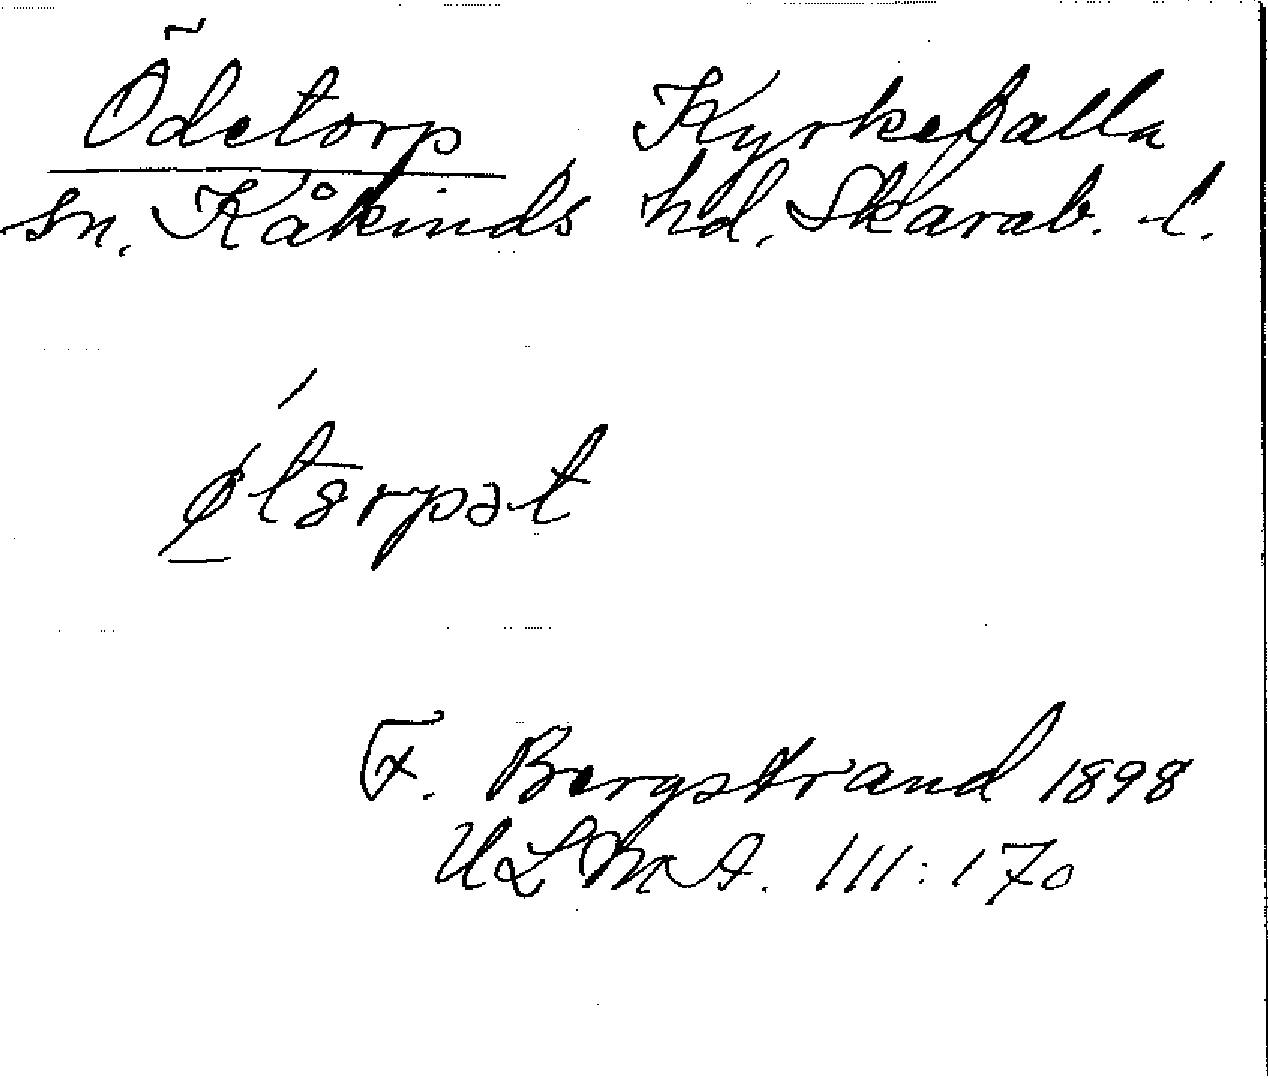 Ödetorp Kyrkefalla
sn. Kåkinds hd. Skarab. l.
ǿtɵrpət
F. Bergstrand 1898
ULMA. 111:170